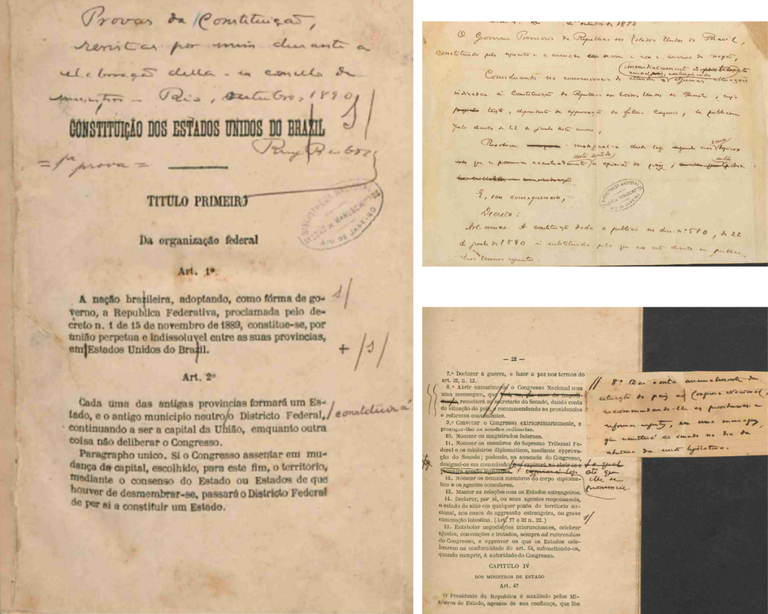 Provas da Constituição,
revistas por mim durante a
elaboração della em conselho de
ministros – Rio, outubro, 1890
CONSTITUIÇÃO DOS ESTADOS UNIDOS DO BRAZIL
Ruy Barbosa
= 1ª prova =
TITULO PRIMEIRO
Da organização federal
Art. 1º
A nação brazileira, adoptando, como fórma de go-
verno, a Republica Federativa, proclamada pelo de-
creto n. 1 de 15 de novembro de 1889, constitue-se, por
união perpetua e indissoluvel entre as suas provincias,
em Estados Unidos do Brazil.
Art. 2º
Cada uma das antigas provincias formará um Es-
tado, e o antigo municipio neutro o Districto Federal,
constituirá
continuando a ser a capital da União, emquanto outra
coisa não deliberar o Congresso.
Paragrapho unico. Si o Congresso assentar em mu-
dança de capital, escolhido, para este fim, o territorio,
mediante o consenso do Estado ou Estados de que
houver de desmembrar-se, passará o Districto Federal
de per si a constituir um Estado.
O Governo Provisorio da Republica dos Estados Unidos do Brazil,
constituido pelo exercito e a armada, em nome e com o accordo da nação,
Considerando
a Constituição da Republica dos Estados Unidos do Brazil,
dependente da approvação do futuro Congresso,
de 22 de junho deste anno,
E, em consequencia,
Decreta:
A constituição dada a publico no dec. nº 510, de 22
de junho de 1890 é substituida pela que com este decreto se publica
nos termos seguintes.
— 22 —
7.º Declarar a guerra, e fazer a paz nos termos do
art. 33, n. 12.
8.º Abrir annualmente o Congresso Nacional com
uma mensagem,
remetterá ao secretario do Senado, dando conta
da situação do paiz, e recommendando as providencias
e reformas convenientes.
9.º Convocar o Congresso extraordinariamente, e
prorogar-lhe as sessões ordinarias.
10. Nomear os magistrados federaes.
11. Nomear os membros do Supremo Tribunal Fede-
ral e os ministros diplomaticos, mediante approva-
ção do Senado; podendo, na ausencia do Congresso,
designal-os em commissão
até que
elle se
pronuncie
12. Nomear os demais membros do corpo diploma-
tico e os agentes consulares.
13. Manter as relações com os Estados estrangeiros.
14. Declarar, por si, ou seus agentes responsaveis,
o estado de sitio em qualquer ponto do territorio na-
cional, nos casos de aggressão estrangeira, ou grave
commoção intestina. (Art. 77 e 33 n. 22.)
15. Entabolar negociações internacionaes, celebrar
ajustes, convenções e tratados, sempre ad referendum
do Congresso, e approvar os que os Estados cele-
brarem na conformidade do art. 64, submettendo-os,
quando cumprir, á autoridade do Congresso.
CAPITULO IV
DOS MINISTROS DE ESTADO
Art. 47
O Presidente da Republica é auxiliado pelos Mi-
nistros de Estado, agentes de sua confiança, que lhe
8º Dar conta annualmente da
situação do paiz ao Congresso Nacional,
recommendando-lhe as providencias e
reformas urgentes, em uma mensagem,
que remetterá ao senado no dia da
abertura da sessão legislativa.